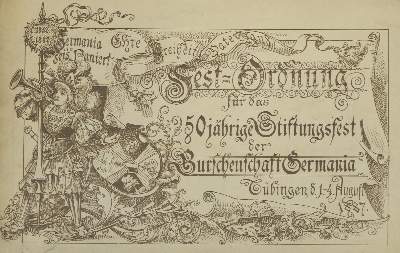 Germania
sei's Panier!
Ehre
Freiheit
Vaterland
Fest=Ordnung
für das
50 jährige Stiftungsfest
der
Burschenschaft Germania
Tübingen d. 1-4. August